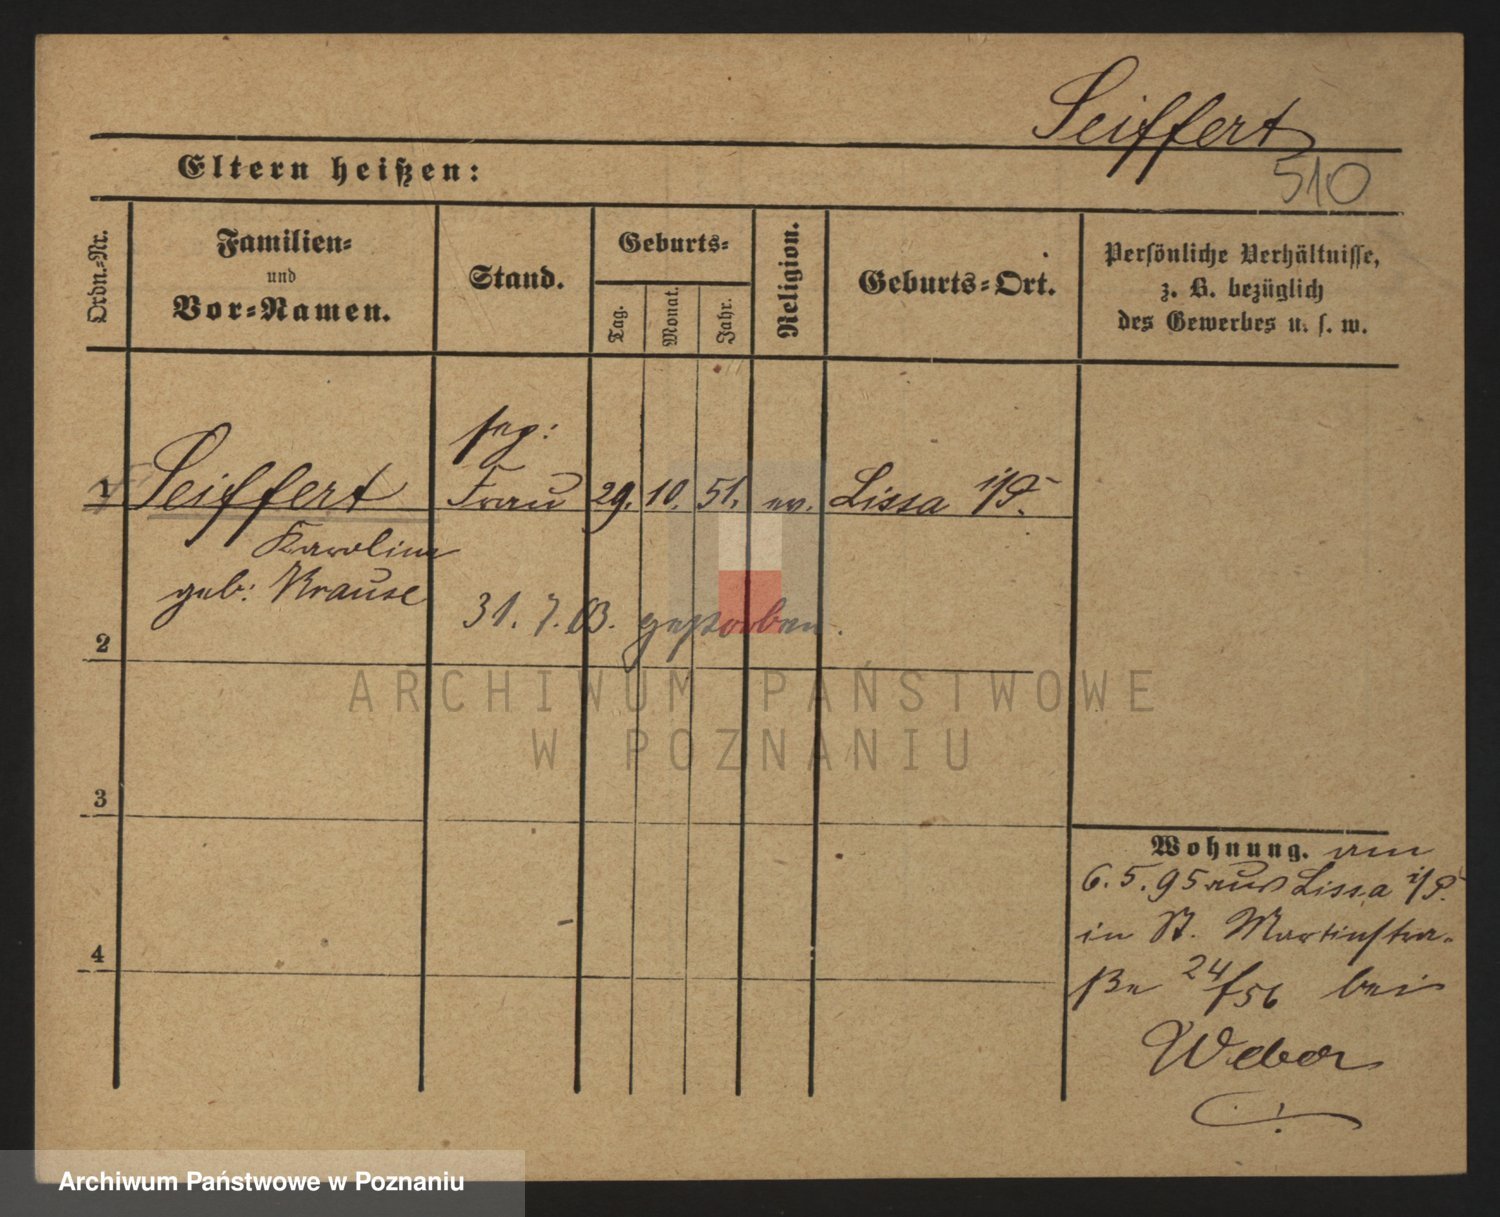 Seiffert
510
Eltern heißen:
Ordn.-Nr.
Familien-
und
Vor-Namen.
Stand.
Geburts-
Tag.
Monat.
Jahr.
Religion.
Geburts-Ort.
Persönliche Verhältnisse,
z. B. bezüglich
des Gewerbes u. s. w.
1 Seiffert Frau 29. 10. 51. ev. Lissa i/P.
Karoline
geb: Krause
31. 7. 03. gestorben.
2
3
4
Wohnung. am
6. 5. 95 aus Lissa i/P.
in St. Martinstra-
ße 24/56 bei
Weber
ARCHIWUM PAŃSTWOWE
W POZNANIU
Archiwum Państwowe w Poznaniu